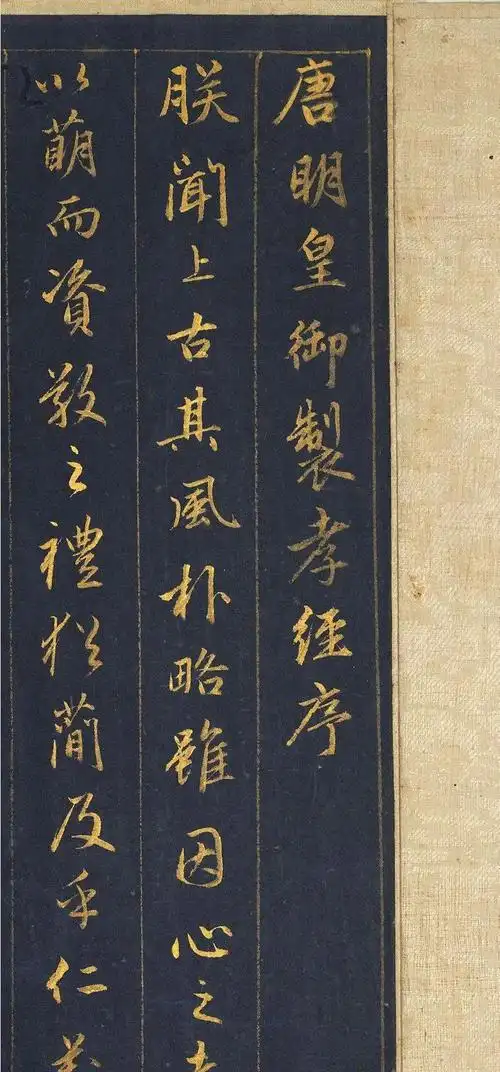 唐明皇御製孝經序
朕聞上古其風朴略雖因心之
以萌而資敬之禮猶簡及乎仁